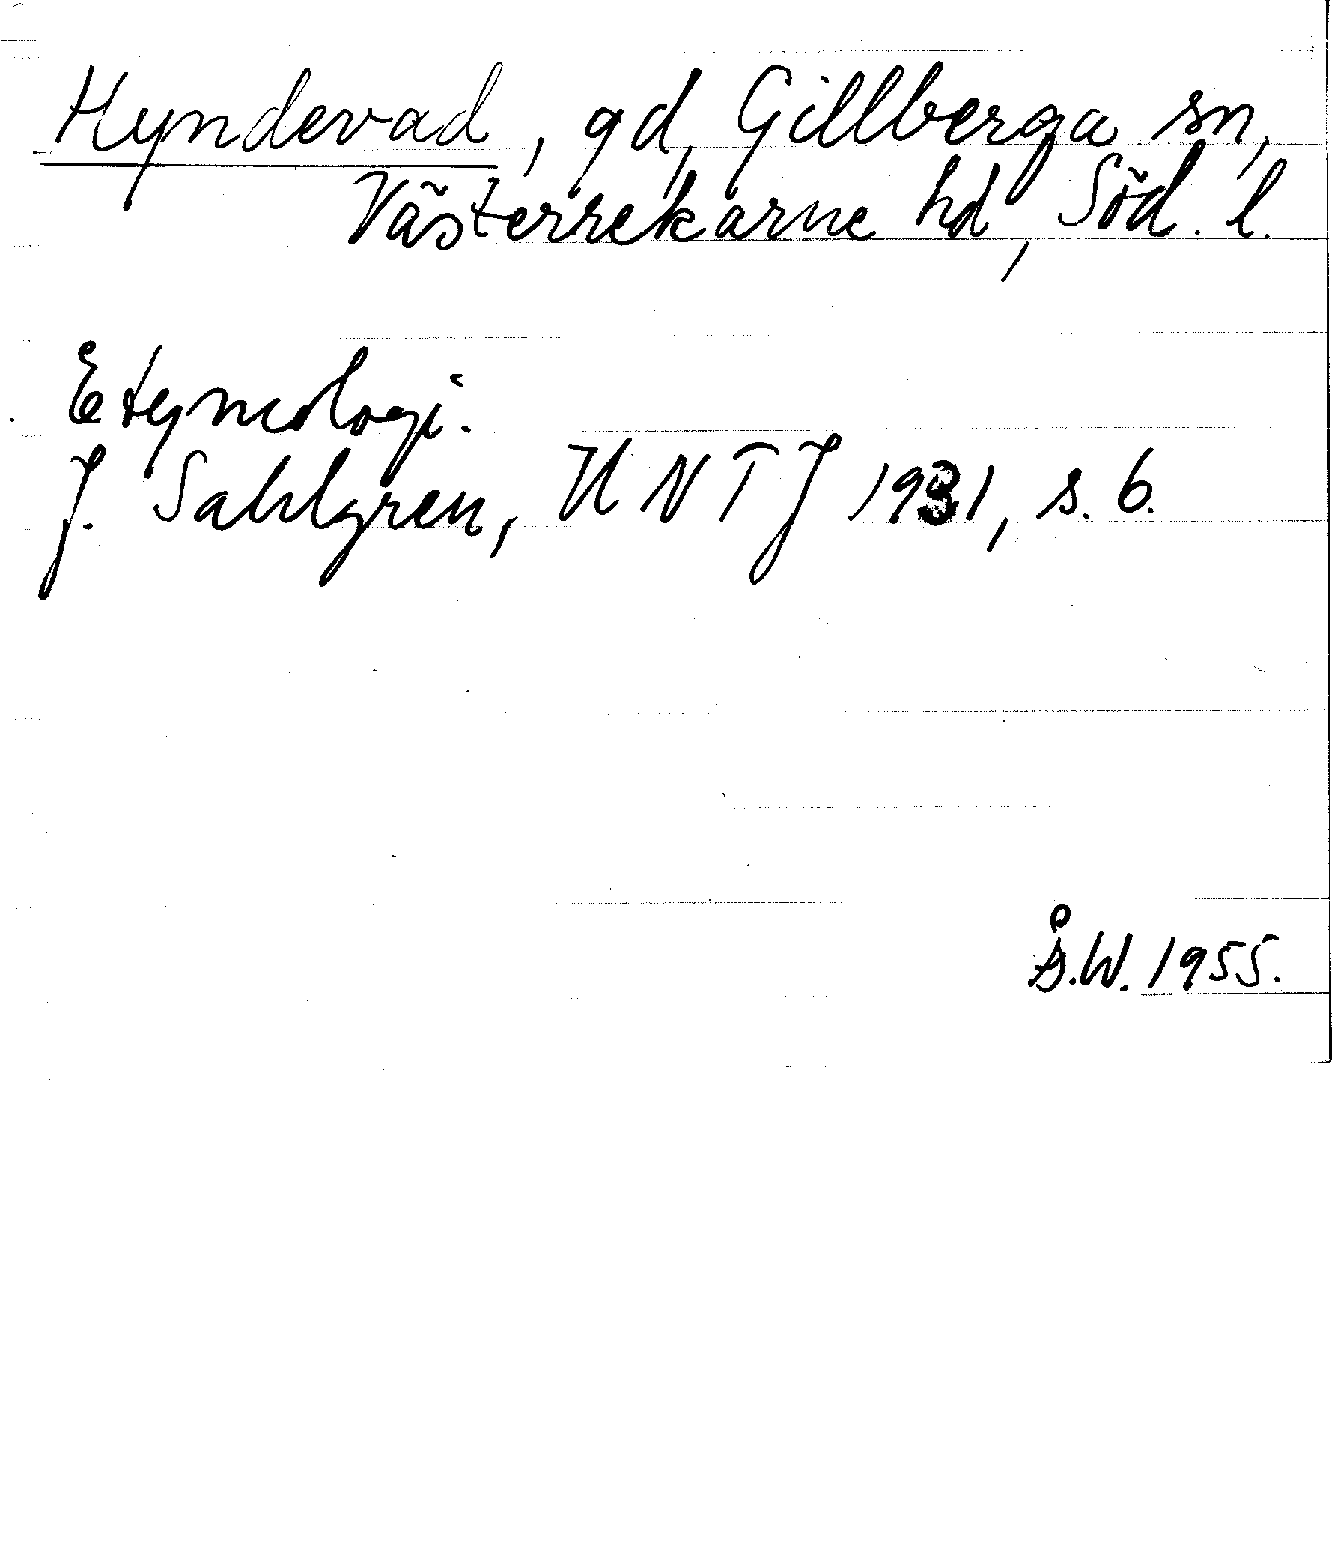 Hyndevad, gd, Gillberga sn,
Västerrekarne hd, Söd. l.
Etymologi.
J. Sahlgren, UNTJ 1931, s. 6.
Å.W. 1955.